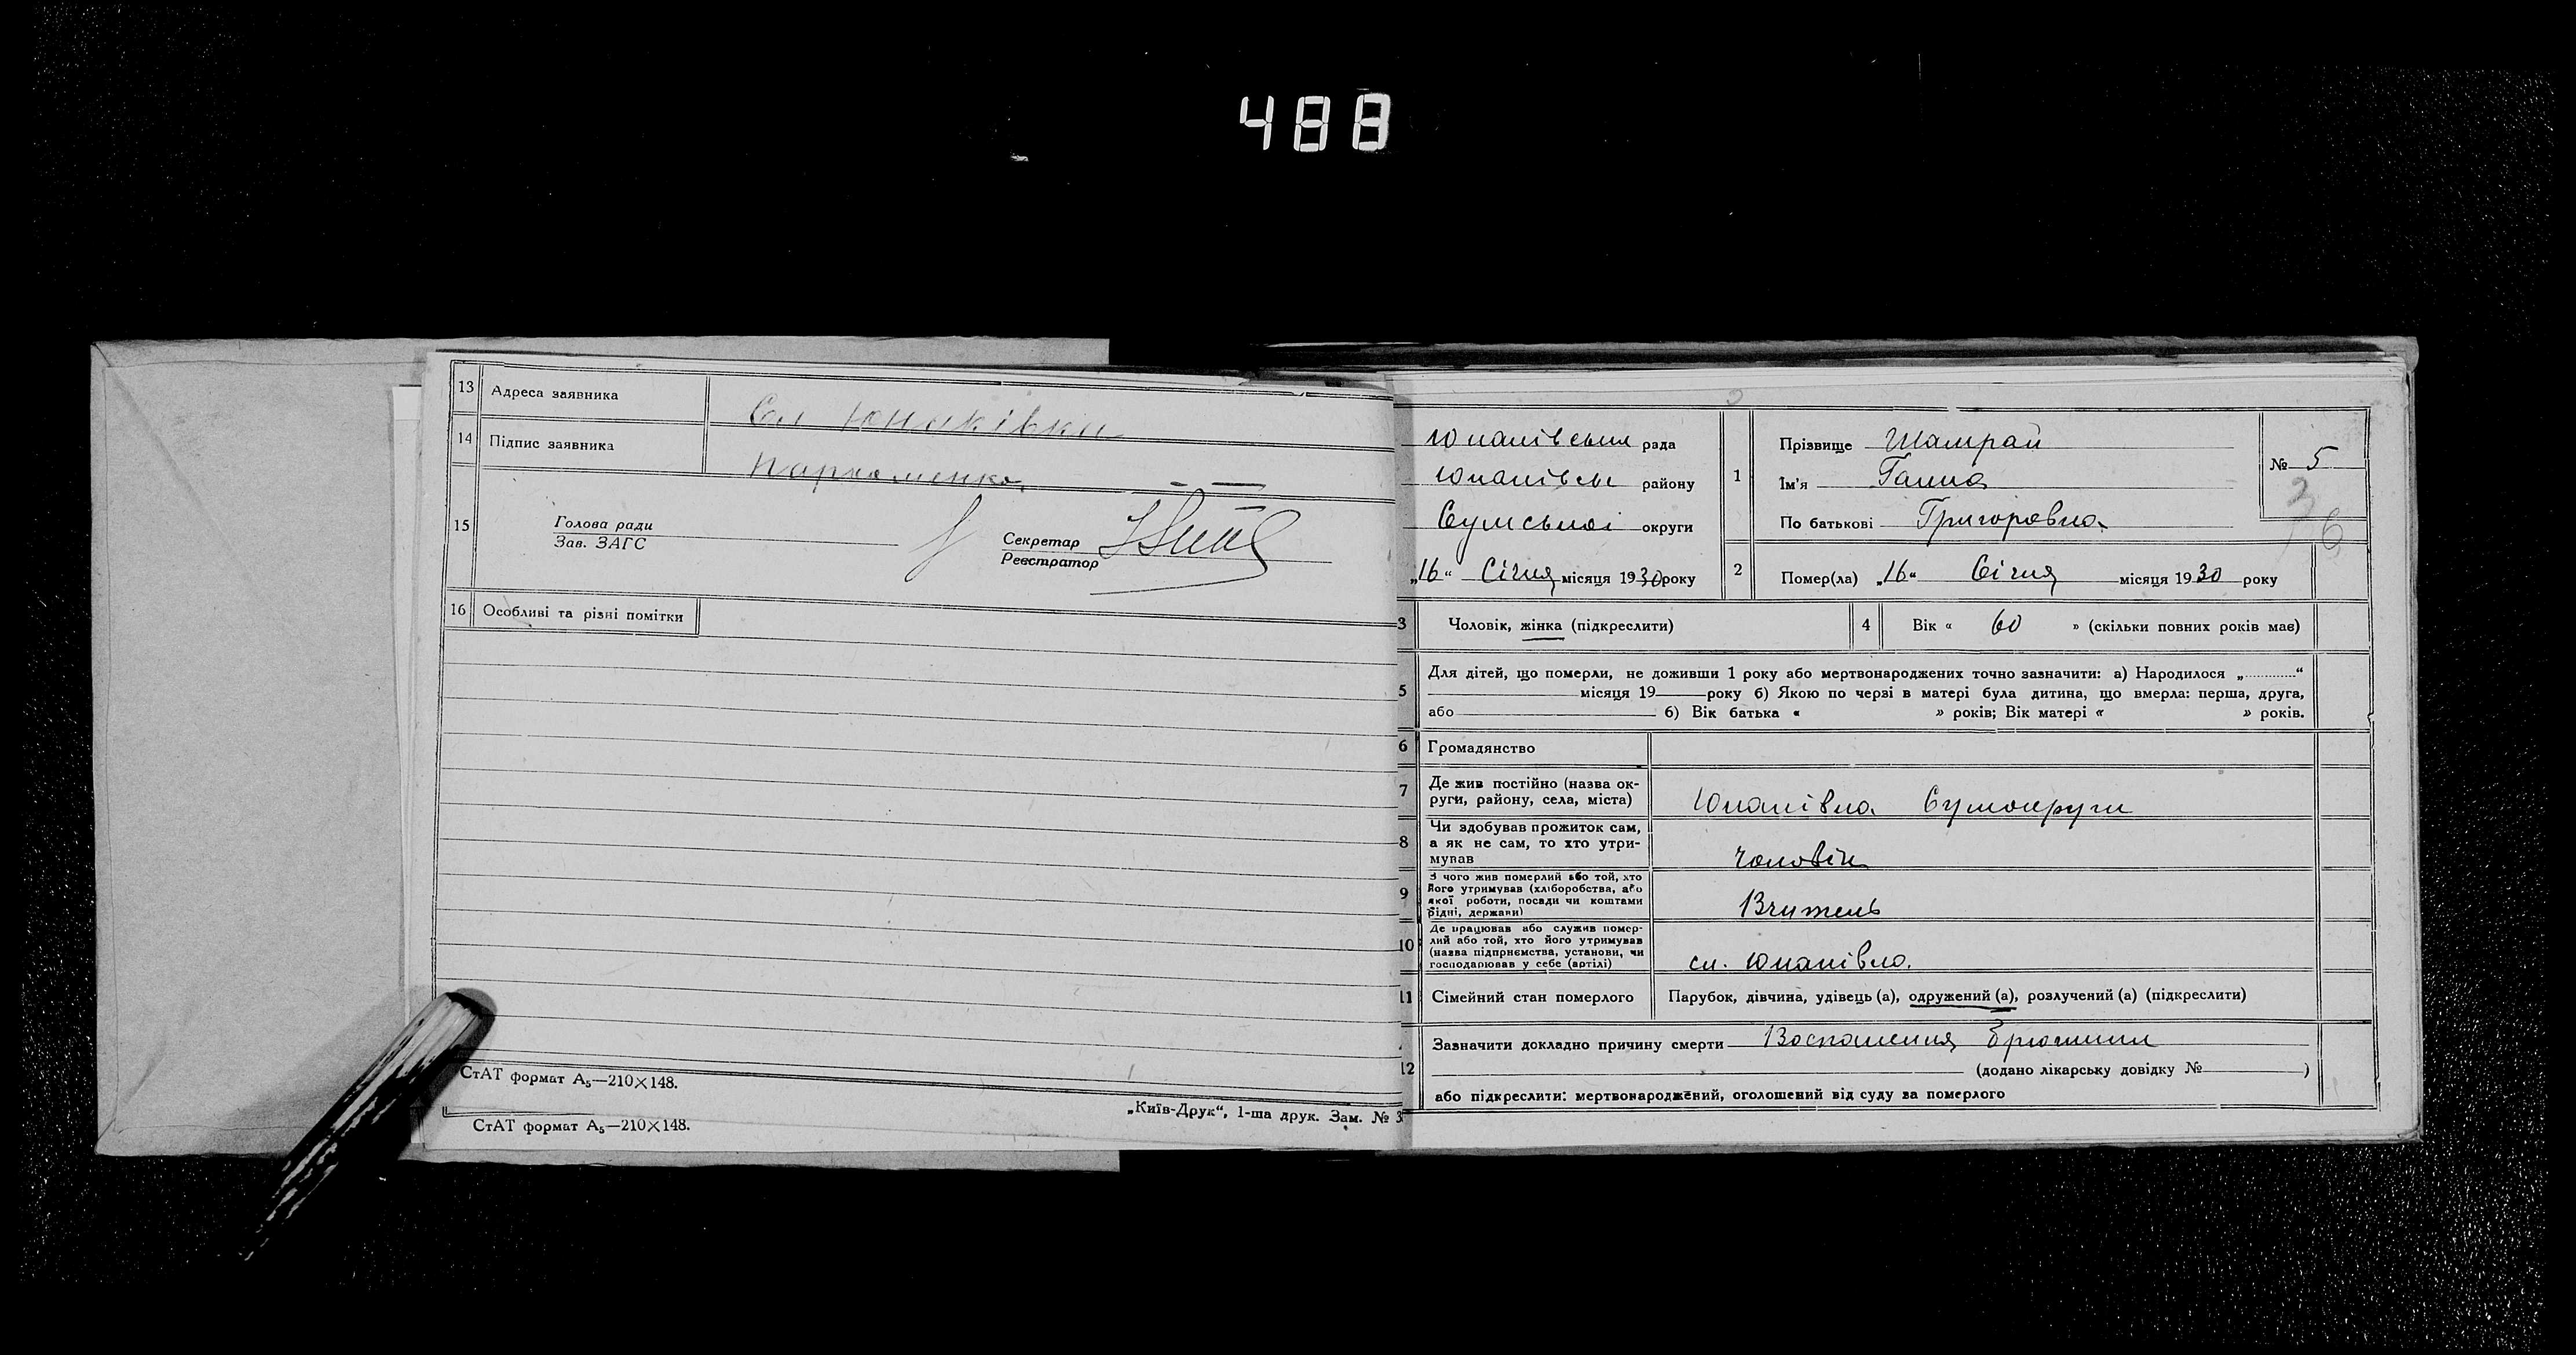 488
13 Адреса заявника Сл Юнаківка
14 Підпис заявника Пархоменко
15 Голова ради
Зав. ЗАГС
Секретар
Реєстратор
16 Особливі та різні помітки
СтАТ формат А₅—210×148.
„Київ-Друк“, 1-ша друк. Зам. № 3
СтАТ формат А₅—210×148.
Юнаківська рада
Юнаківськ району
Сумської округи
„16“ Січня місяця 1930 року
1 Прізвище Шамрай
Ім'я Ганна
По батькові Григоровна
№ 5
36
2 Помер(ла) „16“ Січня місяця 1930 року
3 Чоловік, жінка (підкреслити)
4 Вік « 60 » (скільки повних років має)
5 Для дітей, що померли, не доживши 1 року або мертвонароджених точно зазначити: а) Народилося „ “
місяця 19 року б) Якою по черзі в матері була дитина, що вмерла: перша, друга,
або б) Вік батька « » років; Вік матері « » років.
6 Громадянство
7 Де жив постійно (назва ок-
руги, району, села, міста) Юнаківка Сумокруги
8 Чи здобував прожиток сам,
а як не сам, то хто утри-
мував чоловік
9 З чого жив померлий або той, хто
його утримував (хліборобства, або
якої роботи, посади чи коштами
рідні, держави) Вчитель
10 Де працював або служив помер-
лий або той, хто його утримував
(назва підприємства, установи, чи
господарював у себе (артілі) сл. Юнаківка.
11 Сімейний стан померлого Парубок, дівчина, удівець (а), одружений (а), розлучений (а) (підкреслити)
12 Зазначити докладно причину смерти Воспаления брюшини
(додано лікарську довідку № )
або підкреслити: мертвонароджений, оголошений від суду за померлого